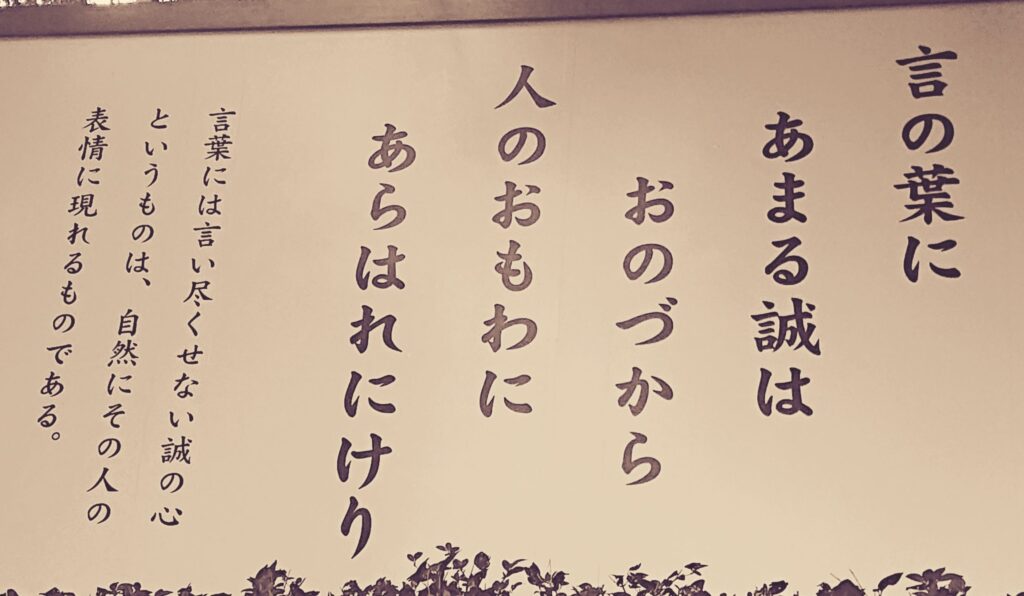 言の葉に
あまる誠は
おのづから
人のおもわに
あらはれにけり
言葉には言い尽くせない誠の心
というものは、自然にその人の
表情に現れるものである。